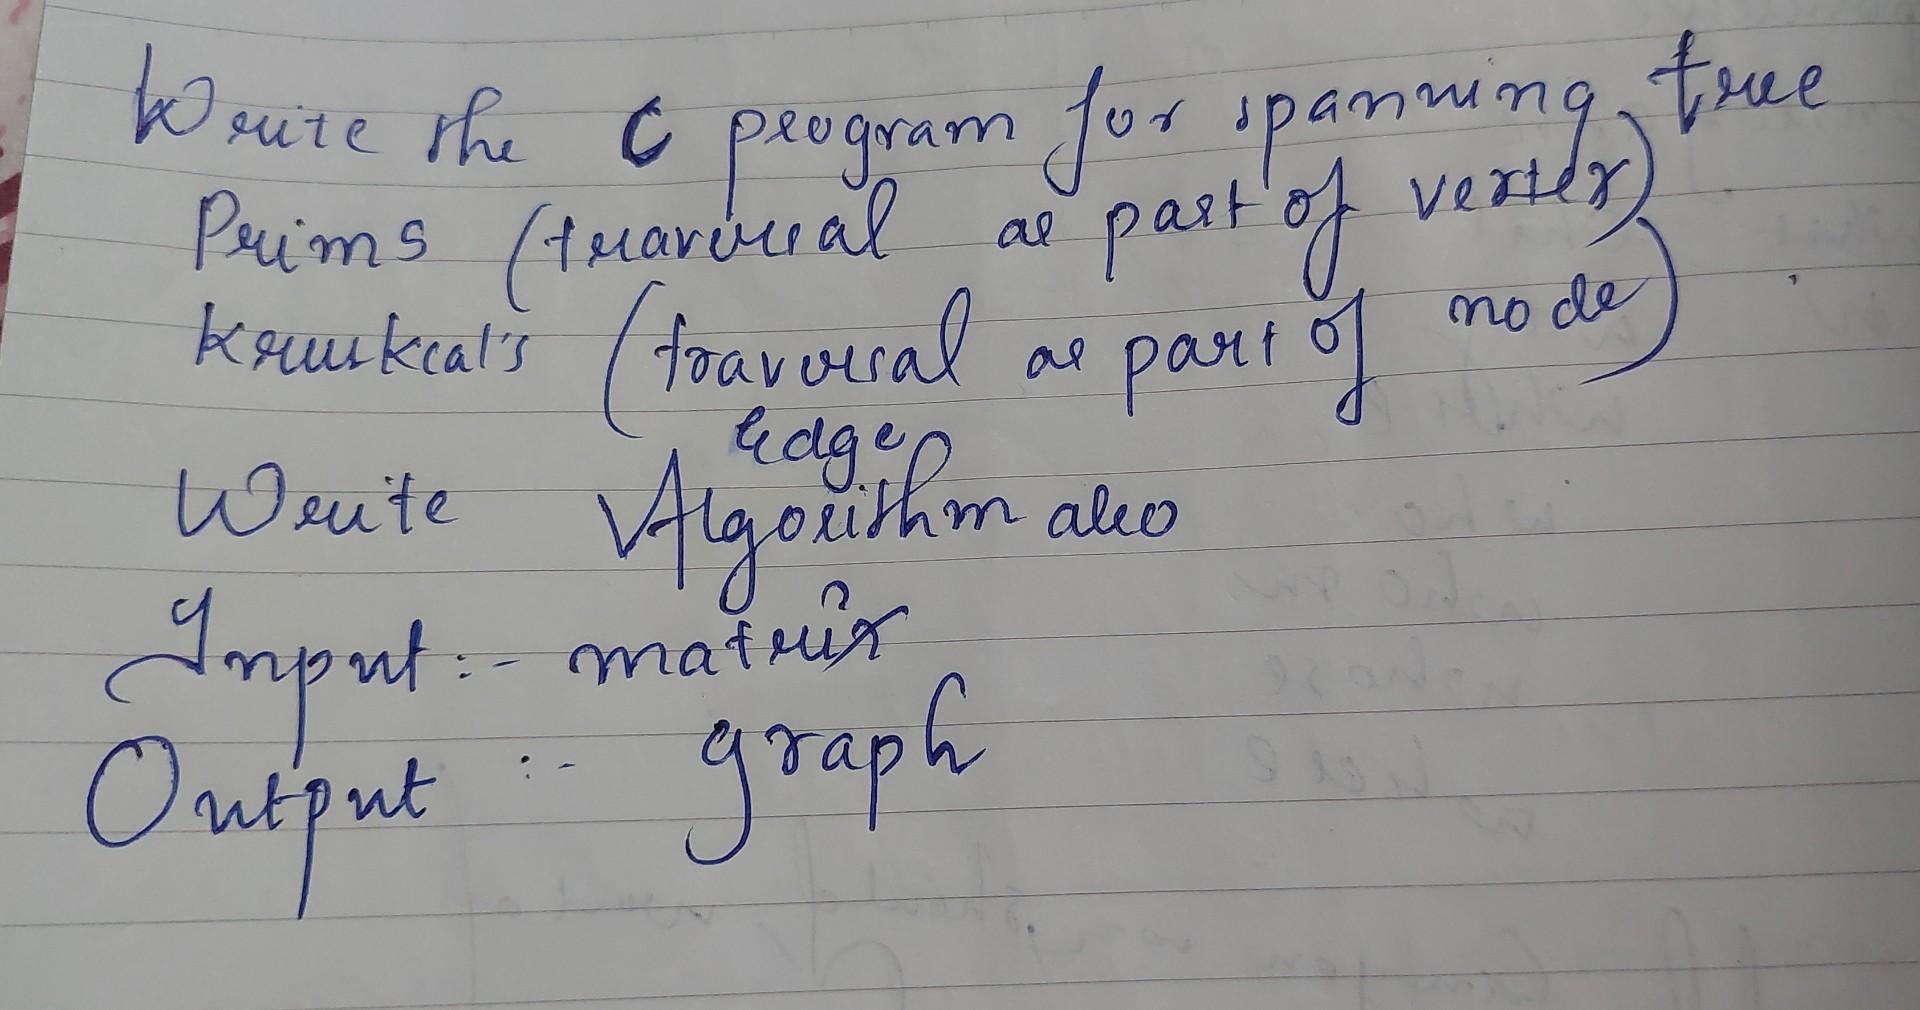 Write the C program for spanning tree
Prims (traversal as part of vertex)
Kruskcal's (traversal as part of node)
edge
Write Algorithm also
Input :- matrix
Output :- graph